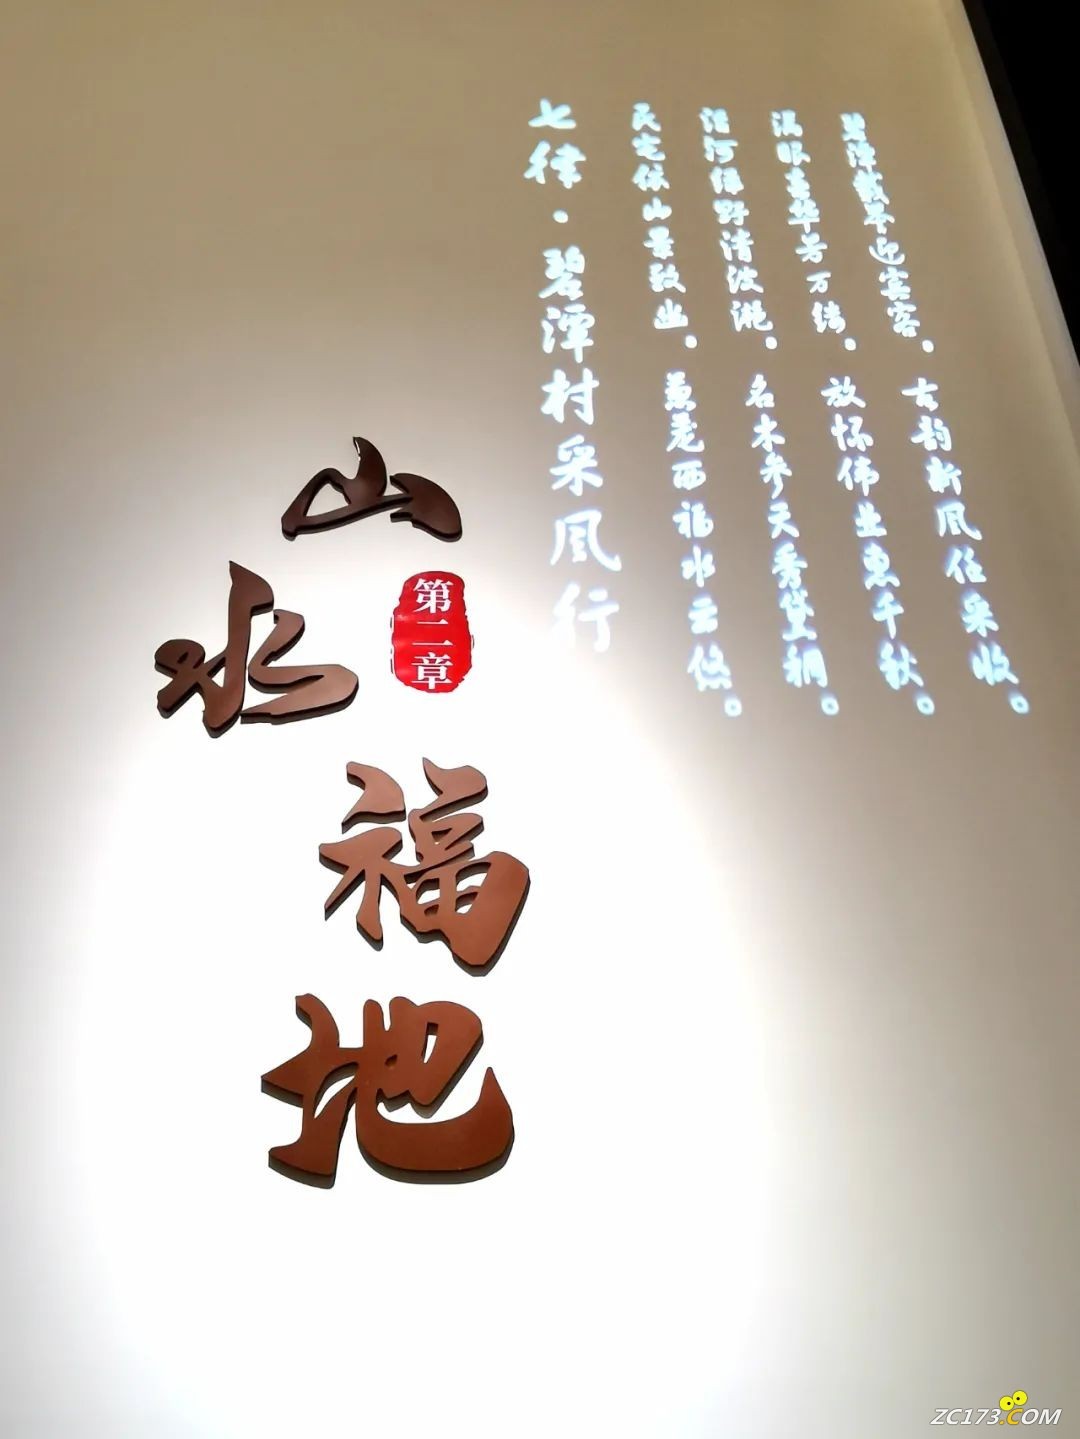 七律·碧潭村采风行
民宅依山景致幽。福水云悠。
沿河绿野清波滟。名木参天秀黛稠。
满眼华芳万绮。放怀伟业惠千秋。
碧潭迎宾客。古韵新风任采收。
山水福地
第二章
ZC173.COM